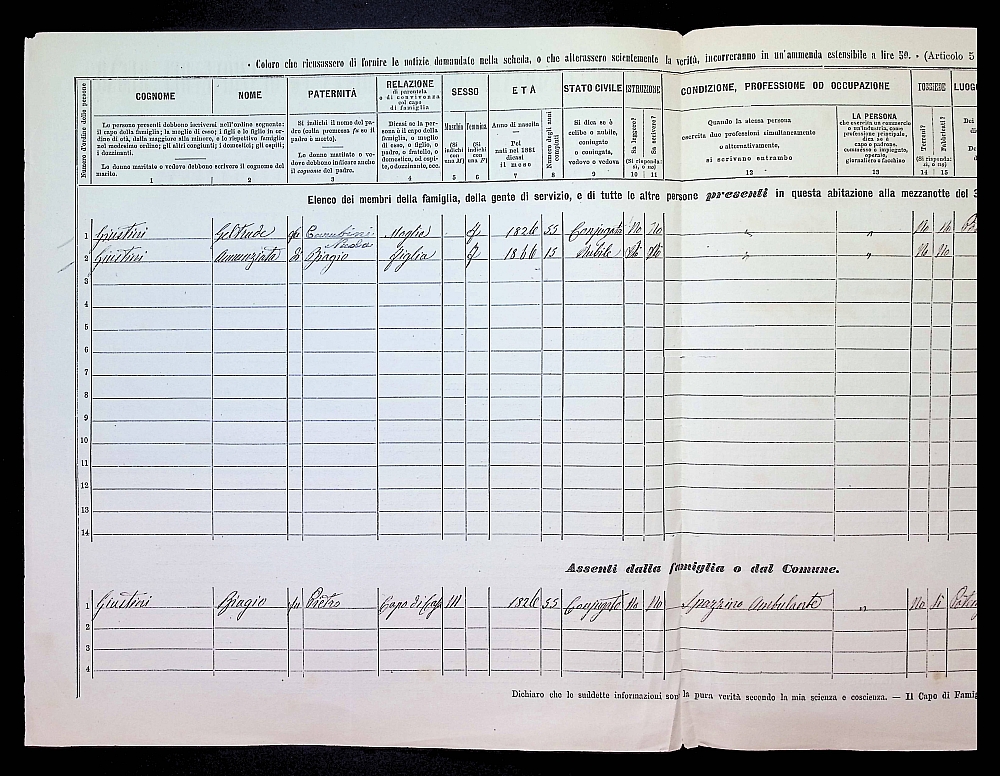 · Coloro che ricusassero di fornire le notizie domandate nella scheda, o che alterassero scientemente la verità, incorreranno in un'ammenda estensibile a lire 50. · (Articolo 5
Numero d'ordine delle persone
COGNOME
NOME
Le persone presenti debbono iscriversi nell'ordine seguente:
il capo della famiglia; la moglie di esso; i figli e le figlie in or-
dine di età, dalla maggiore alla minore, e le rispettive famiglie
nel medesimo ordine; gli altri congiunti; i domestici; gli ospiti;
i dozzinanti.
Le donne maritate o vedove debbono scrivere il cognome del
marito.
1 2
PATERNITÀ
Si indichi il nome del pa-
dre (colla premessa fu se il
padre è morto).
Le donne maritate o ve-
dove debbono indicare anche
il cognome del padre.
3
RELAZIONE
di parentela
o di convivenza
col capo
di famiglia
Dicasi se la per-
sona è il capo della
famiglia, o moglie
di esso, o figlio, o
padre, o fratello, o
domestico, od ospi-
te, o dozzinante, ecc.
4
SESSO
Maschio
(Si
indichi
con
una M)
5
Femmina
(Si
indichi
con
una F)
6
ETÀ
Anno di nascita
Pei
nati nel 1881
dicasi
il mese
7
Numero degli anni
compiuti
8
STATO CIVILE
Si dica se è
celibe o nubile,
coniugato
o coniugata,
vedovo o vedova
9
ISTRUZIONE
Sa leggere?
Sa scrivere?
(Si risponda:
sì, o no)
10 11
CONDIZIONE, PROFESSIONE OD OCCUPAZIONE
Quando la stessa persona
esercita due professioni simultaneamente
o alternativamente,
si scrivano entrambe
12
LA PERSONA
che esercita un commercio
o un'industria, come
professione principale,
dica se è
capo o padrone,
commesso o impiegato,
operaio,
giornaliero o facchino
13
POSSIEDE
Terreni?
Fabbricati?
(Si risponda:
sì, o no)
14 15
LUOGO
Elenco dei membri della famiglia, della gente di servizio, e di tutte le altre persone presenti in questa abitazione alla mezzanotte del 3
1 Giustini Geltrude Moglie f 1826 55 Conjugata No No " " No No
Nicola
2 Giustini Annunziata di Biagio figlia f 1866 15 Nubile No No " " No No
3
4
5
6
7
8
9
10
11
12
13
14
Assenti dalla famiglia o dal Comune.
1 Giustini Biagio fu Pietro Capo di Casa M 1826 55 Conjugato No No Spazzino Ambulante " No Si
2
3
4
Dichiaro che le suddette informazioni son la pura verità secondo la mia scienza e coscienza. — Il Capo di Famig